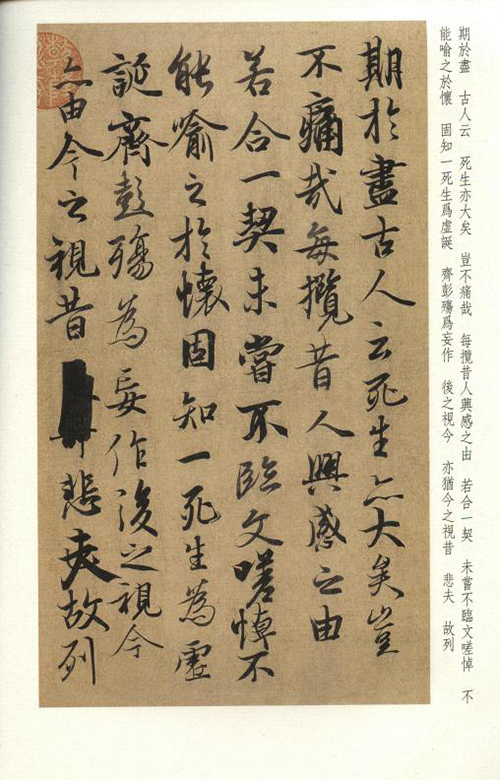 期於盡 古人云 死生亦大矣 豈不痛哉 每攬昔人興感之由 若合一契 未嘗不臨文嗟悼 不
能喻之於懷 固知一死生爲虛誕 齊彭殤爲妄作 後之視今 亦猶今之視昔 悲夫 故列
期於盡古人云死生亦大矣豈
不痛哉每攬昔人興感之由
若合一契未嘗不臨文嗟悼不
能喻之於懷固知一死生為虛
誕齊彭殤為妄作後之視今
亦由今之視昔 悲夫故列